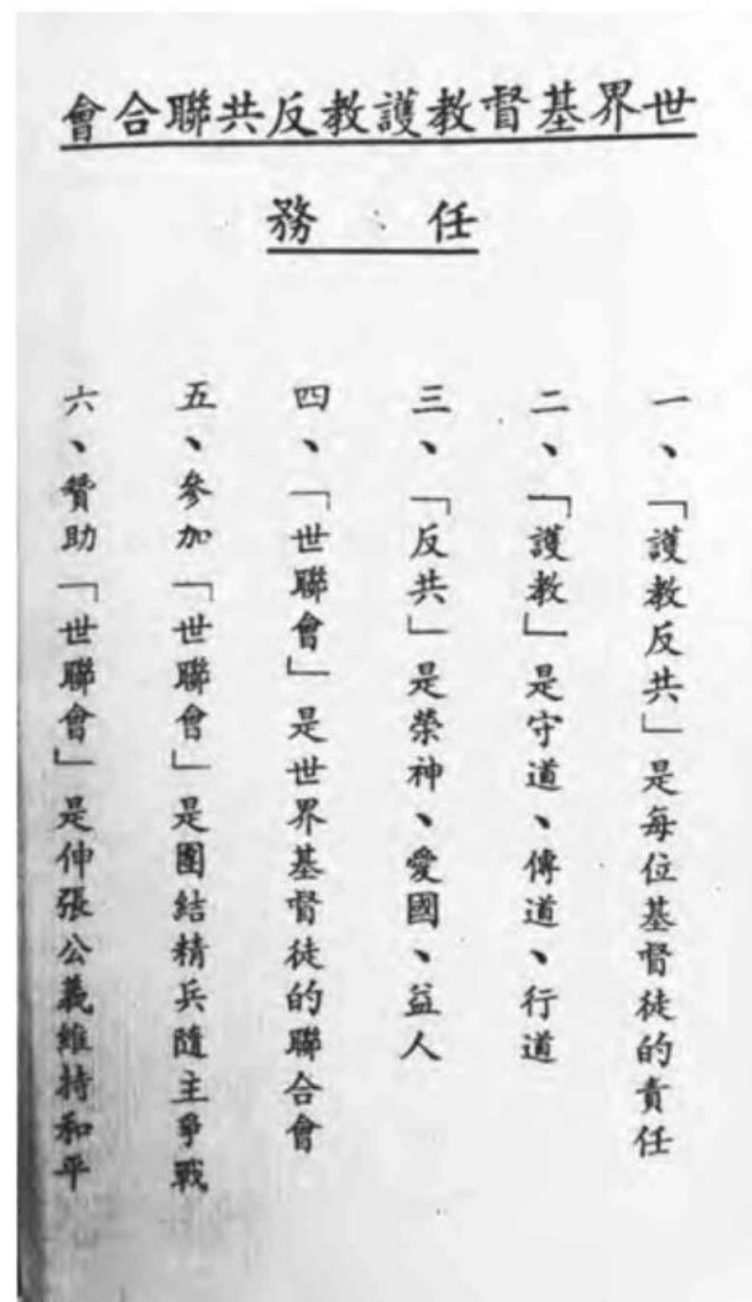 世界基督教護教反共聯合會
任務
一、「護教反共」是每位基督徒的責任
二、「護教」是守道、傳道、行道
三、「反共」是榮神、愛國、益人
四、「世聯會」是世界基督徒的聯合會
五、參加「世聯會」是團結精兵隨主爭戰
六、贊助「世聯會」是伸張公義維持和平